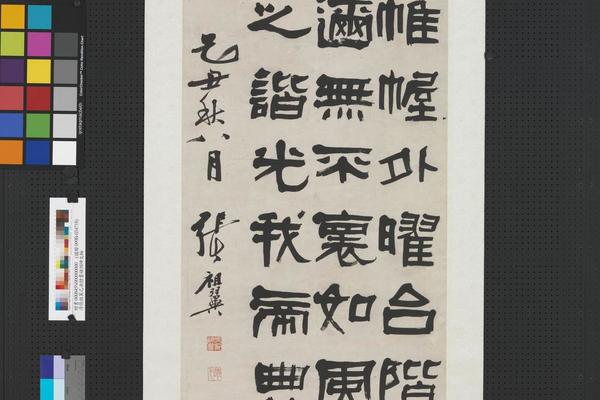 帷幄外曜台階
邇無不褱如風
之諧光我帝典
己丑秋八月 張祖翼